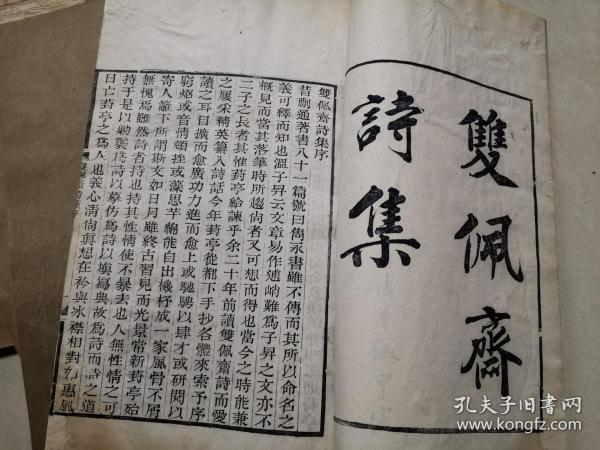 雙佩齋
詩集
雙佩齋詩集序
昔蒯通著書八十一篇號曰雋永書雖不傳而其所以命名之
義可釋而知也溫子昇云文章易作逋峭難為子昇之文亦不
概見而當其落筆時所趨尚者又可想而得也當今之時能兼
二子之長者其惟葑亭給諫乎余二十年前讀雙佩齋詩而愛
之屢宋精英纂入詩話今年葑亭從都下手抄各體來索予序
讀之耳目擴而愈廣功力進而愈上或馳騁以肆才或研閱以
窮照或音情頓挫或藻思芊綿能自出機杼成一家風骨不屑
寄人籬下所謂斯文如日月雖終古習見而光景常新葑亭殆
無愧焉雖然詩者持也持其性情使不暴去也人無性情之可
持于是以勦襲為詩以摹仿為詩以填寫典故為詩而詩之道
日亡葑亭之為人也義心清尚真想在衿與冰襟相對如惠風
孔夫子旧书网
www.kongfz.com